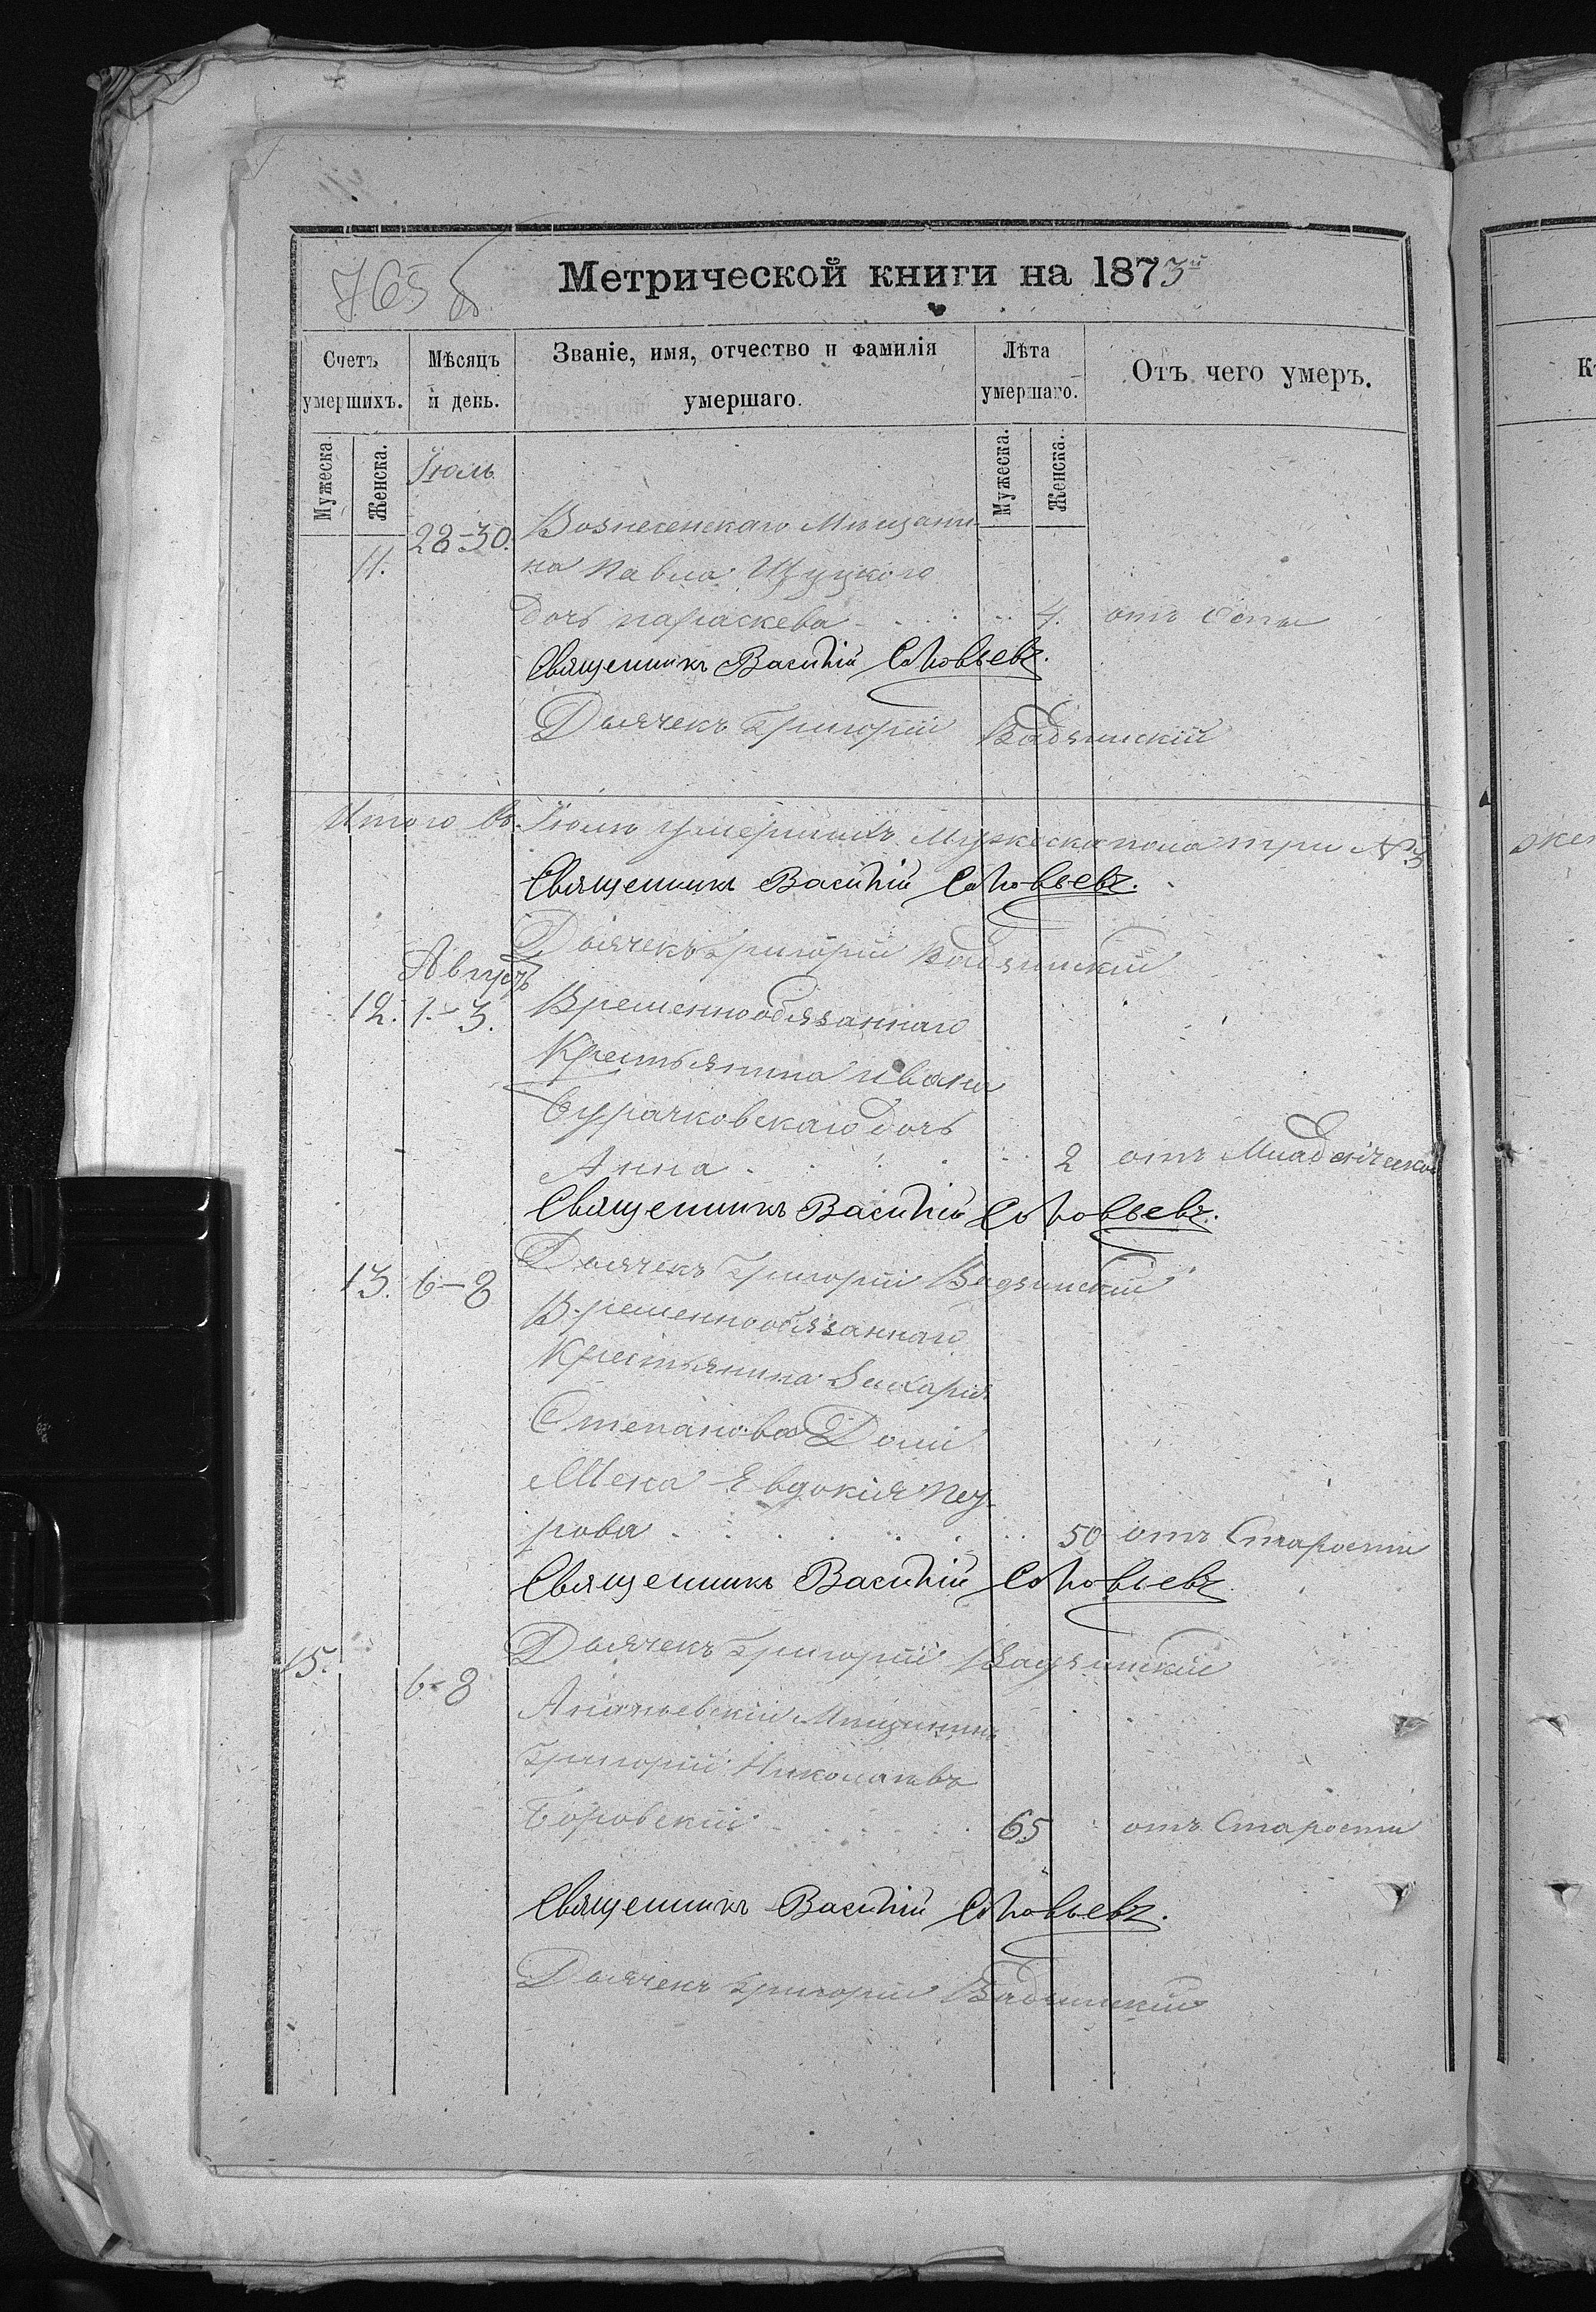 765 б
Метрической книги на 1873й
Счетъ умершихъ.
Мѣсяцъ и день.
Званіе, имя, отчество и фамилія умершаго.
Лѣта умершаго.
Отъ чего умеръ.
Мужеска
Женска.
Мужеска.
Женска.
Іюль
11. 28-30. Вознесенскаго Мѣщани
на Павла Щуцкого
дочь параскева 4. отъ Оспы
Священникъ Василій Соловьевъ.
Дьячекъ Григорій
Итого въ Іюлѣ умершихъ Мужеска пола три № 3
Священникъ Василій Соловьевъ.
Дьячекъ Григорій
Августъ
12. 1-3. Временнообязаннаго
Крестьянина Ивана
дочь
Анна 2 отъ Младенческой
Священникъ Василій Соловьевъ.
Дьячекъ Григорій
13. 6-8 Временнообязаннаго
Крестьянина Захарія
Степанова
Жена Евдокія
рова 50 отъ Старости
Священникъ Василій Соловьевъ
Дьячекъ Григорій
15. 6-8
Ананьевскій Мѣщанинъ
Григорій Николаевъ
Боровскій 65 отъ Старости
Священникъ Василій Соловьевъ.
Дьячекъ Григорій